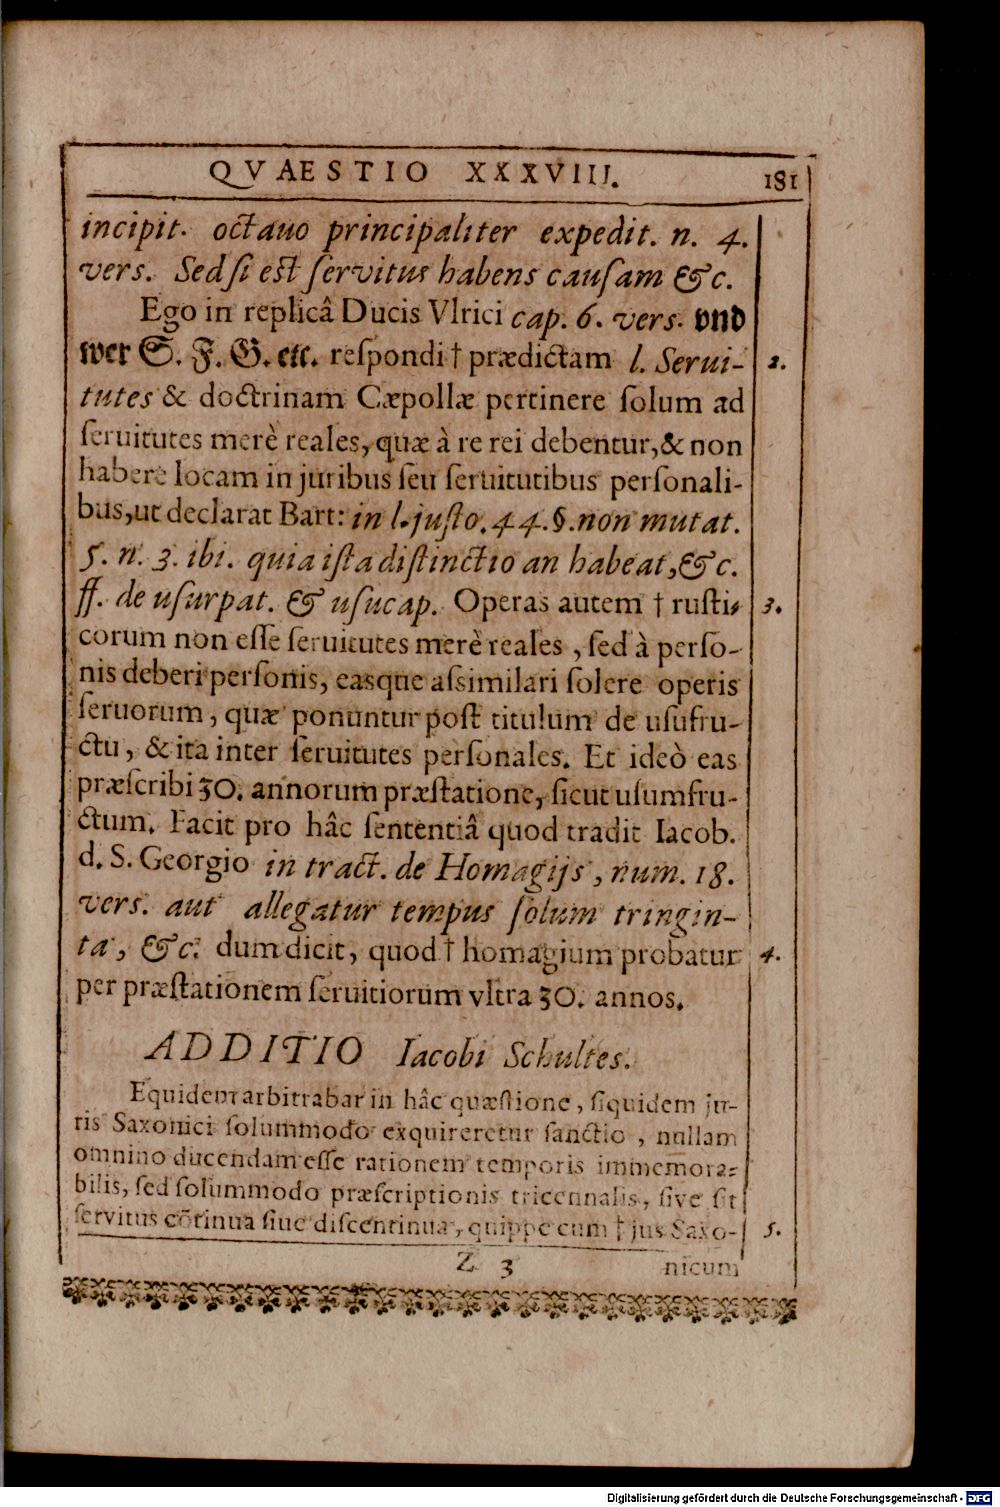 QVAESTIO XXXVIII. 181
incipit. octauo principaliter expedit. n. 4.
vers. Sed ſi est ſervitus habens cauſam &c.
Ego in replicâ Ducis Vlrici cap. 6. vers. vnd
wer S. F. G. etc. reſpondi † prædictam l. Serui- 2.
tutes & doctrinam Cæpollæ pertinere ſolum ad
ſeruitutes merè reales, quæ à re rei debentur, & non
habere locam in juribus ſeu ſeruitutibus perſonali-
bus, ut declarat Bart: in l. juſto. 44. §. non mutat.
5. n. 3. ibi. quia iſta diſtinctio an habeat, &c.
ff. de uſurpat. & uſucap. Operas autem † ruſti- 3.
corum non eſſe ſeruitutes merè reales, ſed à perſo-
nis deberi perſonis, easque aſsimilari ſolere operis
ſeruorum, quæ ponuntur poſt titulum de uſufru-
ctu, & ita inter ſeruitutes perſonales. Et ideò eas
præſcribi 30. annorum præſtatione, ſicut uſumfru-
ctum. Facit pro hâc ſententiâ quod tradit Iacob.
d. S. Georgio in tract. de Homagijs, num. 18.
vers. aut allegatur tempus ſolum tringin-
ta, &c. dum dicit, quod † homagium probatur 4.
per præſtationem ſeruitiorum vltra 30. annos.
ADDITIO Iacobi Schultes.
Equidem arbitrabar in hâc quæſtione, ſiquidem ju-
ris Saxonici ſolummodo exquireretur ſanctio, nullam
omnino ducendam eſſe rationem temporis immemora-
bilis, ſed ſolummodo præſcriptionis tricennalis, ſive ſit
ſervitus cõtinua ſiue diſcentinua, quippe cum † jus Saxo- 5.
Z 3 nicum
Digitalisierung gefördert durch die Deutsche Forschungsgemeinschaft - DFG